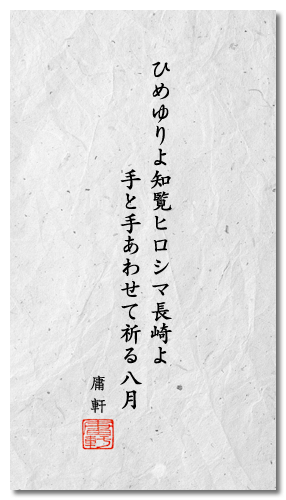 ひめゆりよ知覧ヒロシマ長崎よ
手と手あわせて祈る八月
庸軒
庸軒